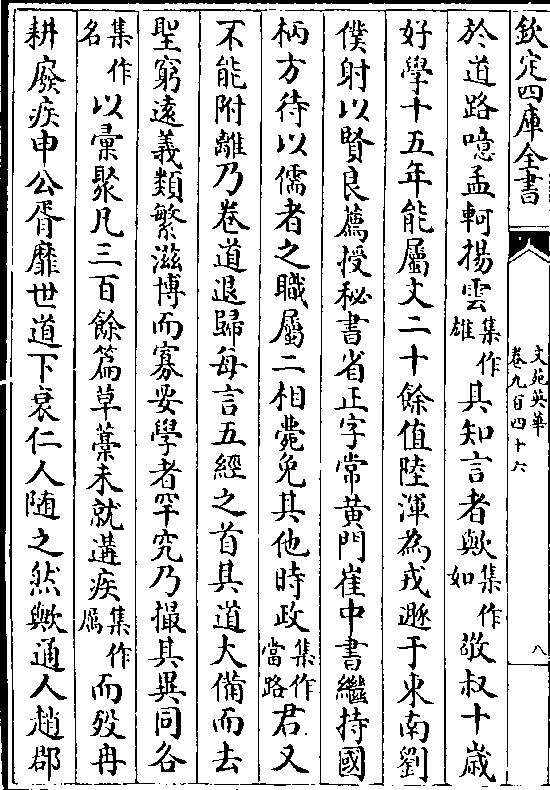 欽定四庫全書
文苑英華
卷九百四十六
八
於道路噫孟軻揚雲集作雄具知言者歟集作如敬叔十歲
好學十五年能屬文二十餘值陸渾為戎遯于東南劉
僕射以賢良薦授秘書省正字常黄門崔中書繼持國
柄方待以儒者之職屬二相薨免其他時政集作當路君又
不能附離乃卷道退歸每言五經之首其道大備而去
聖窮遠義類繁滋博而寡要學者罕究乃撮其異同各
集作名以彙聚凡三百餘篇草藳未就遘疾集作厲而殁冉
耕廢疾申公胥靡世道下衰仁人随之然歟通人趙郡